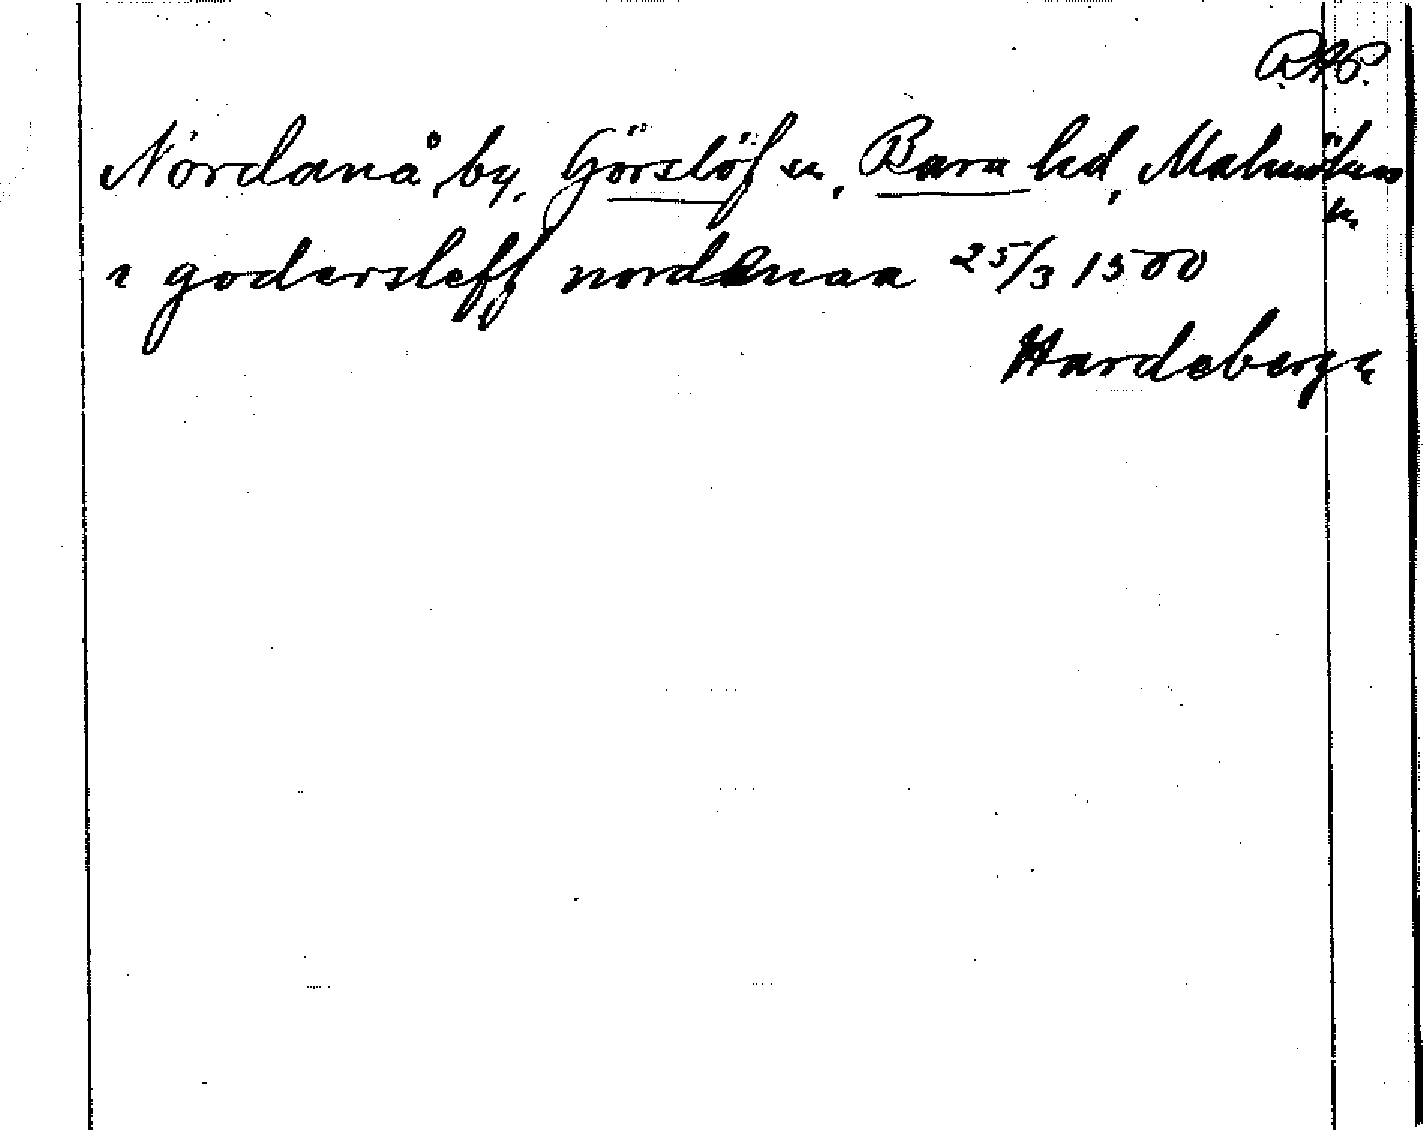 RAP.
Nordanå by, Görslöf sn, Bara hd, Malmöhus
ln.
i godersleff nordenaa 25/3 1500
Hardeberga